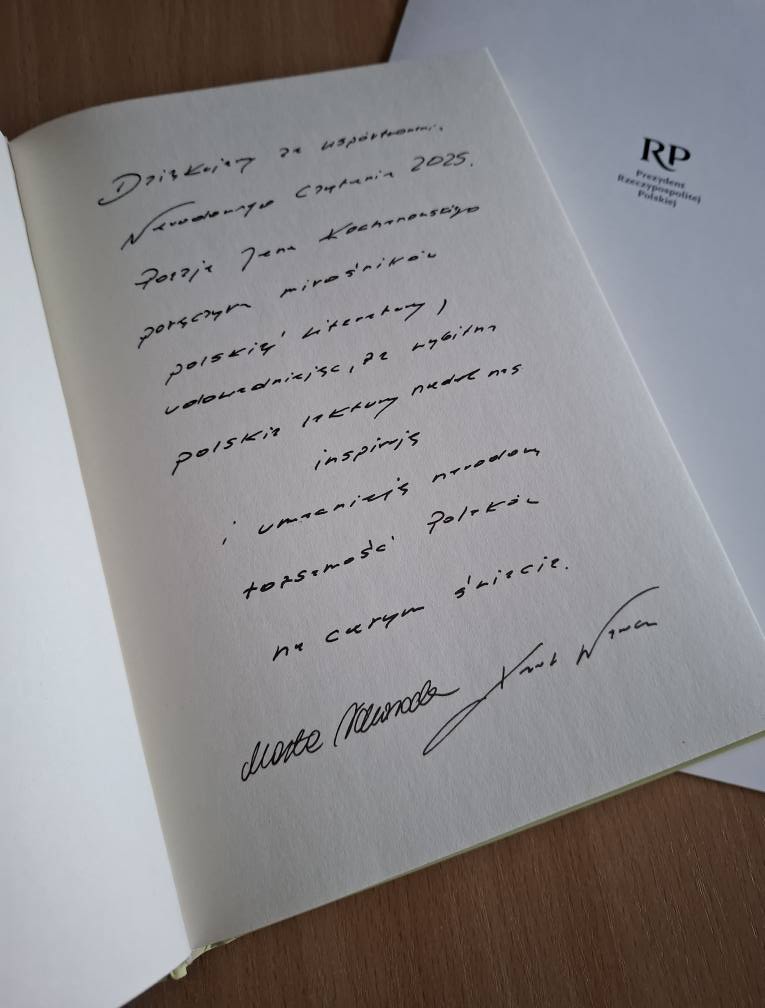 Dziękujemy za współtworzenie
Narodowego Czytania 2025.
Poezja Jana Kochanowskiego
połączyła miłośników
polskiej literatury,
udowadniając, że wybitne
polskie lektury nadal nas
inspirują
i umacniają narodową
tożsamość Polaków
na całym świecie.
Marta Nawrocka
RP
Prezydent
Rzeczypospolitej
Polskiej